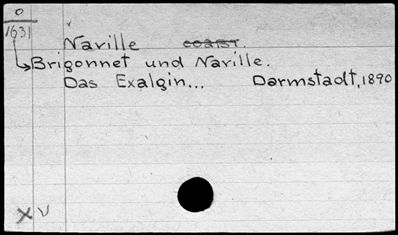 0
1631
Naville coaist.
Brigonnet und Naville.
Das Exalgin... Darmstadt, 1890
X V